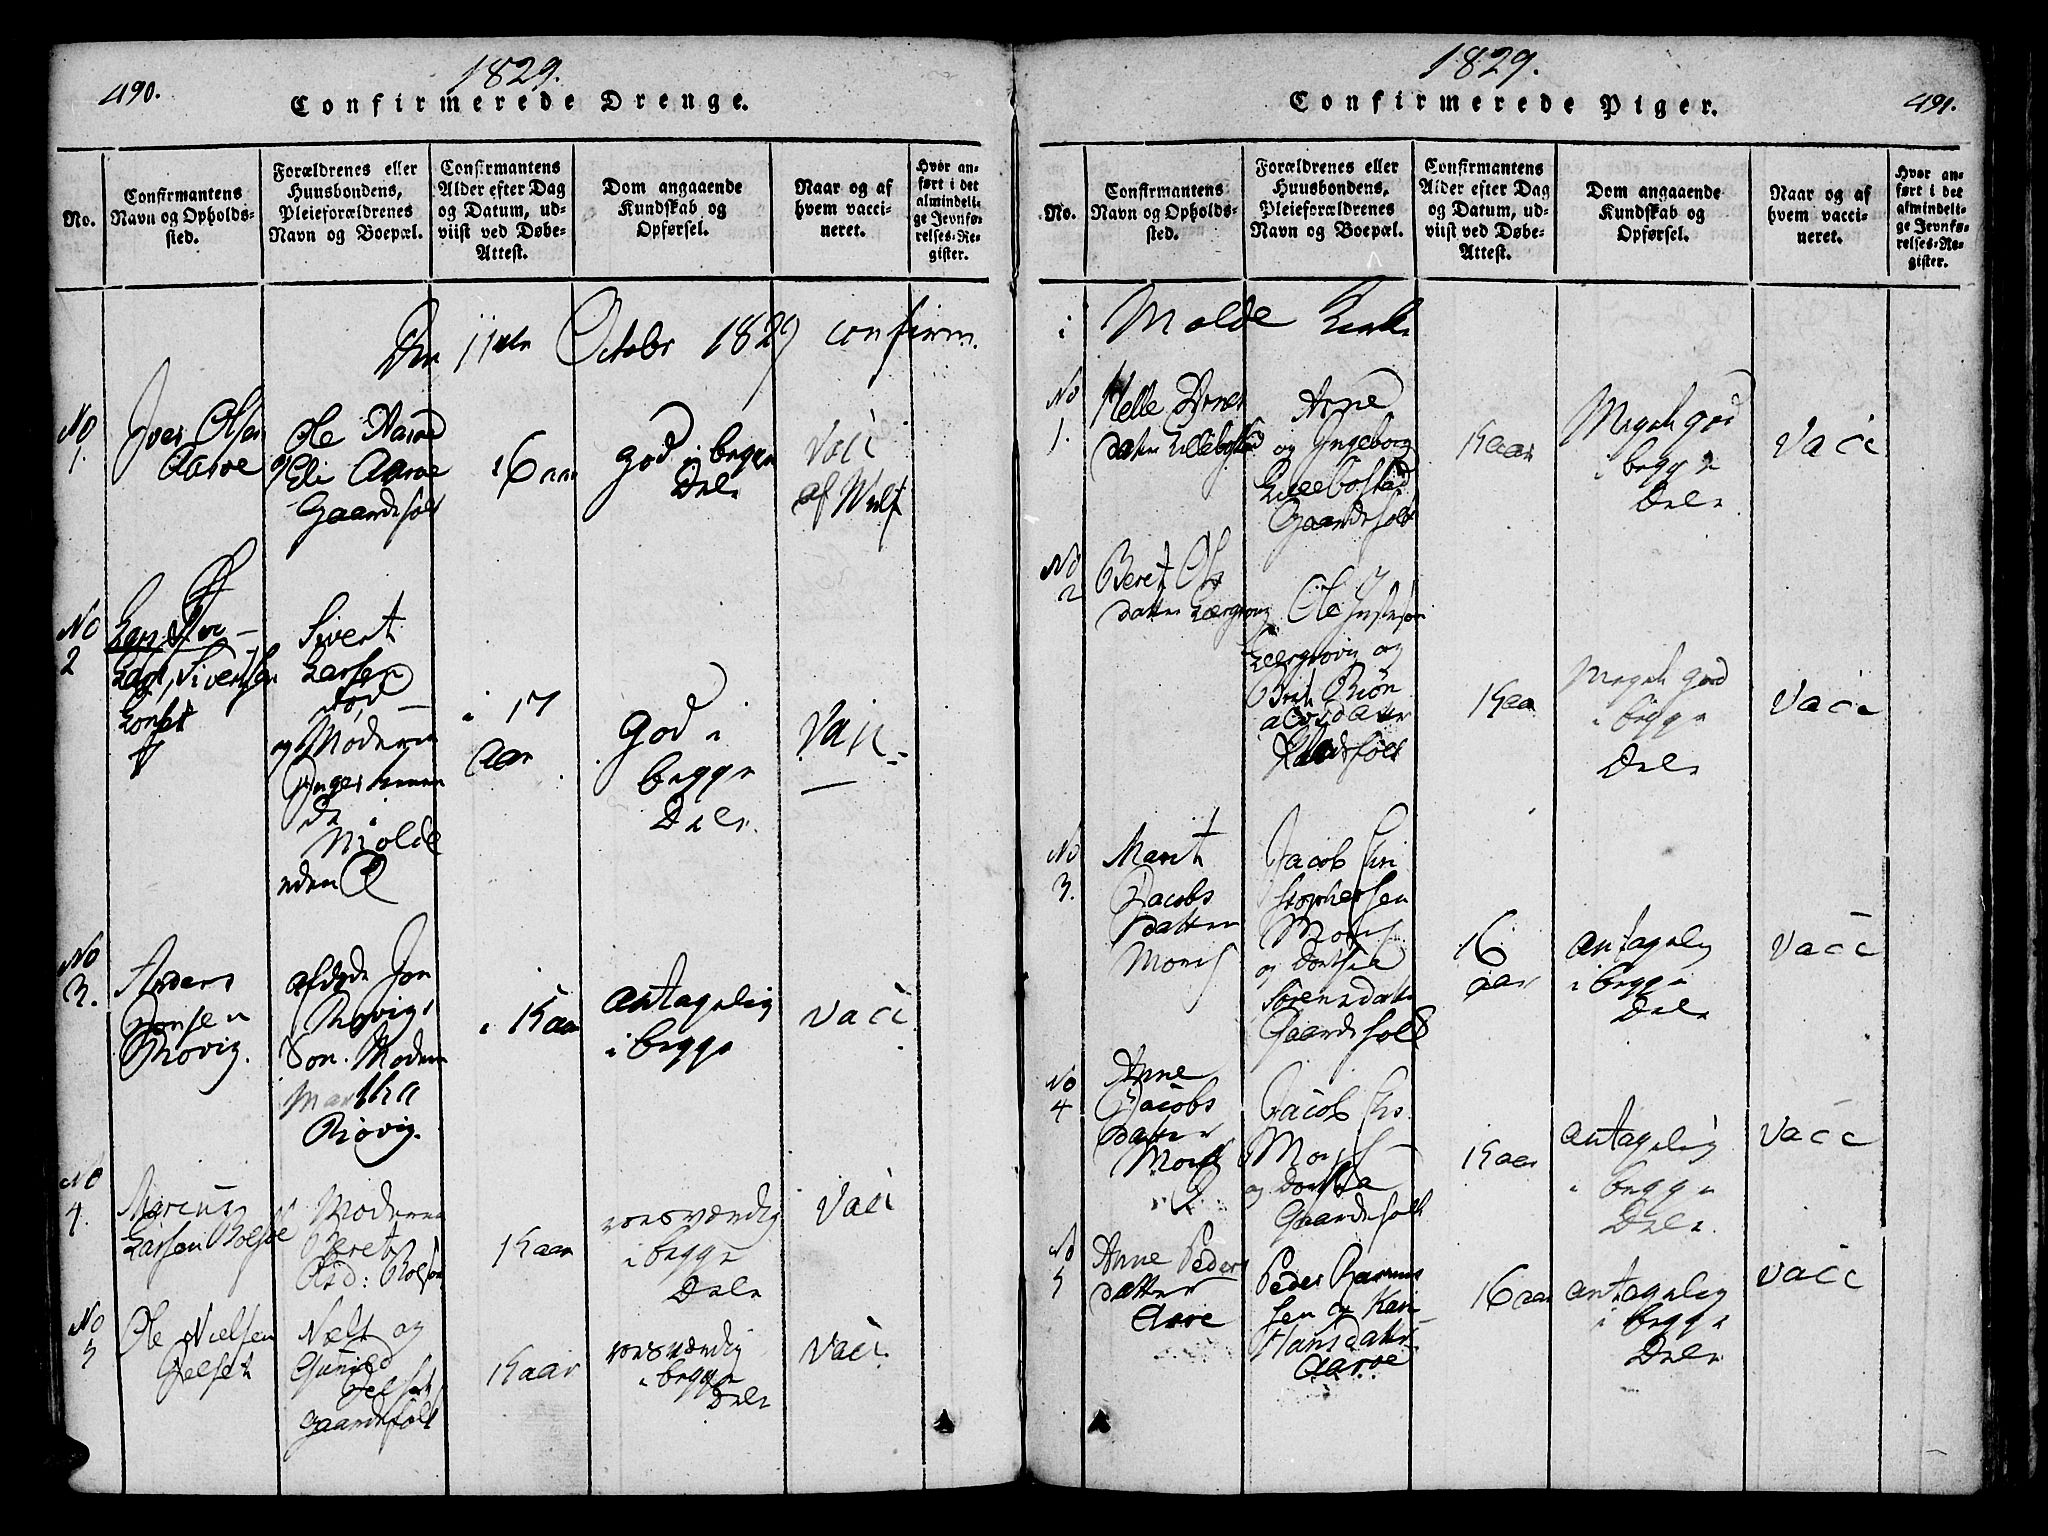 490.
1829.
Confirmerede Drenge.
No.
Confirmantens
Navn og Opholds-
sted.
Forældrenes eller
Huusbondens,
Pleieforældrenes
Navn og Boepæl.
Confirmantens
Alder efter Dag
og Datum, ud-
viist ved Døbe-
Attest.
Dom angaaende
Kundskab og
Opførsel.
Naar og af
hvem vacci-
neret.
Hvor an-
ført i det
almindeli-
ge Jevnfø-
relses-Re-
gister.
Den 11te October 1829 confirm.
No
1.
Iver Olsen
Aarøe
Ole Aarøe
og Eli Aarøe
Gaardsfolk
16 aar
god i begge
Dele
Vacc
af Wulf
No
2
Lars Sivertsen
Sivert
Larsen
død
og Moderen
i
Molde
17
Aar
God i
begge
Dele.
Vacc.
No
3.
Anders
Jonsen
Røvig.
afdøde Jon
Røvigs
Søn. Moderen
Martha
Røvig.
15 aar
antagelig
i begge
Vacc
No
4.
Marius
Larsen Bolsøe
Moderen
Beret
15 aar
roesværdig
i begge
Dele
Vacc
No
5
Ole Nielsen
Jelset
Nels og
Gunild
Jelset
gaardsfolk
15 aar
roesværdig
i begge
Dele
Vacc.
1829.
491.
Confirmerede Piger.
No.
Confirmantens
Navn og Opholds-
sted.
Forældrenes eller
Huusbondens,
Pleieforældrenes
Navn og Boepæl.
Confirmantens
Alder efter Dag
og Datum, ud-
viist ved Døbe-
Attest.
Dom angaaende
Kundskab og
Opførsel.
Naar og af
hvem vacci-
neret.
Hvor an-
ført i det
almindeli-
ge Jevnfø-
relses-Re-
gister.
i Molde Kirke
No
1.
Helle Arnes
datter Lillebostad
Arne
og Ingeborg
Lillebostad
Gaardsfolk
15 aar
Meget god
i begge
Dele
Vacc
No
2
Beret Ols
datter
Ole
og
15 aar
Meget god
i begge
Dele
Vacc
No
3.
Marit
Jacobs
datter
Jacob Chri
stophersen
og Dorthea
Sørensdatter
Gaardsfolk
16
aar
antagelig
i begge
Dele
Vacc
No
4
Anne
Jacobs
datter
Jacob Chr.
og Dorthea
Gaardsfolk
15 aar
antagelig
i begge
Dele.
Vacc
No
5
Anne Peders
datter
Aarøe
Peder Rasmus
sen og Kari
Hansdatter
Aarøe
16 aar
antagelig
i begge
Dele
Vacc